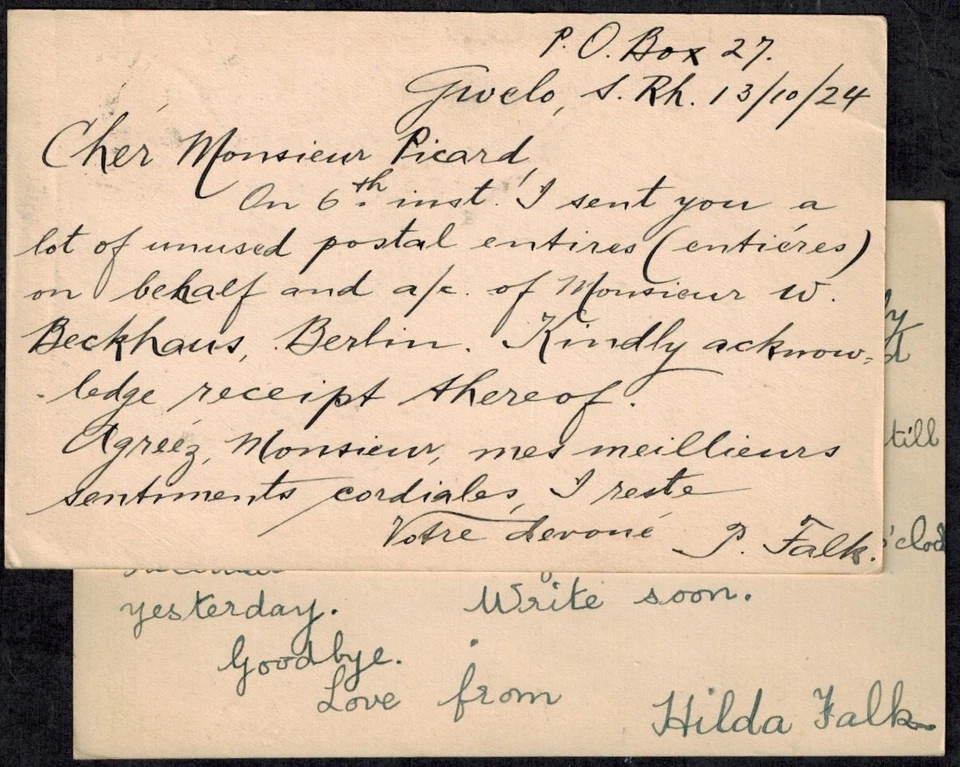 P.O. Box 27.
Gwelo, S. Rh. 13/10/24
Cher Monsieur Picard,
On 6th inst. I sent you a
lot of unused postal entires (entiéres)
on behalf and a/c. of Monsieur W.
Beckhaus, Berlin. Kindly acknow-
ledge receipt thereof.
Agréez, Monsieur, mes meillieurs
sentiments cordiales, I reste
Votre devoué P. Falk.
till
o'clock
yesterday. Write soon.
Goodbye.
Love from
Hilda Falk